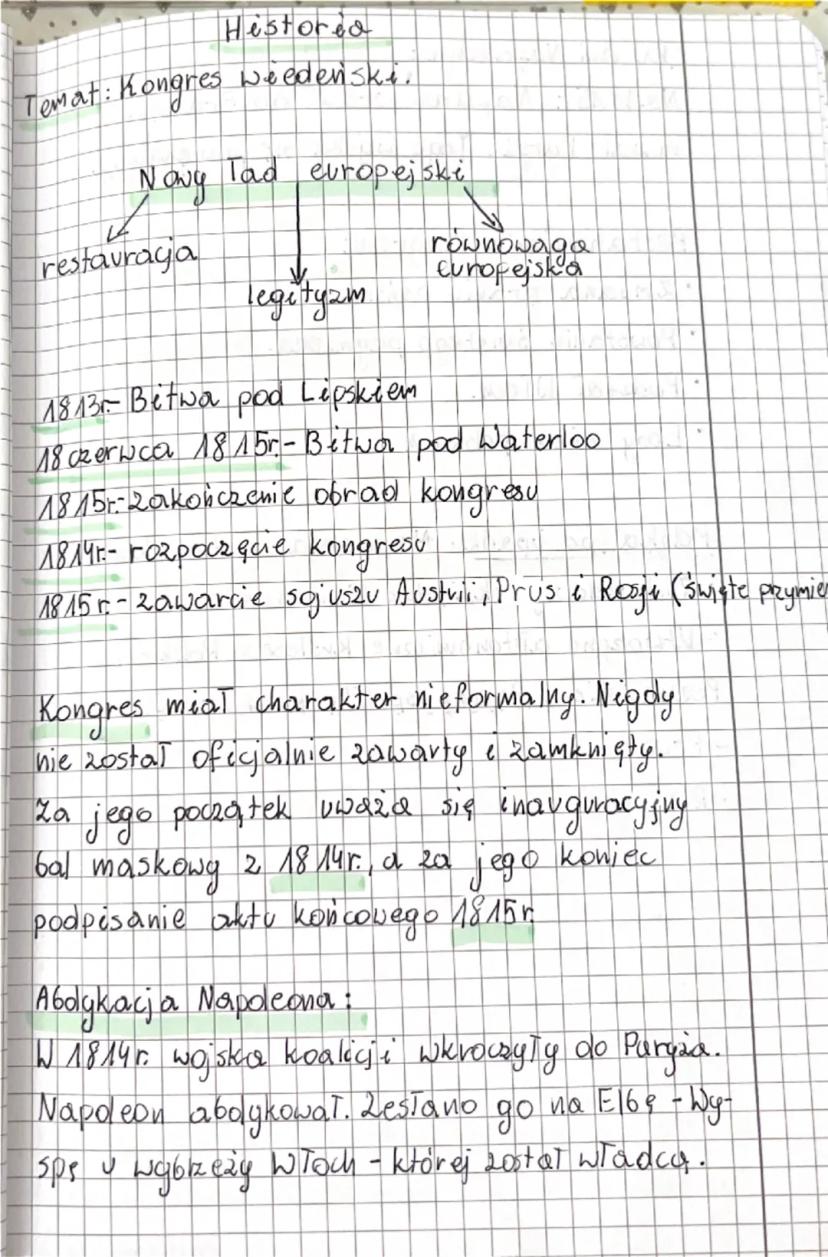 Historia
Temat: Kongres wiedeński.
Nowy ład europejski
restauracja
legityzm
równowaga
europejska
1813r.- Bitwa pod Lipskiem
18 czerwca 1815r.- Bitwa pod Waterloo
1815r.- zakończenie obrad kongresu
1814r.- rozpoczęcie kongresu
1815r.- zawarcie sojuszu Austrii, Prus i Rosji (święte przymie
Kongres miał charakter nieformalny. Nigdy
nie został oficjalnie zawarty i zamknięty.
Za jego początek uważa się inauguracyjny
bal maskowy z 1814r., a za jego koniec
podpisanie aktu końcowego 1815r.
Abdykacja Napoleona:
W 1814r. wojska koalicji wkroczyły do Paryża.
Napoleon abdykował. Zesłano go na Elbę - Wy-
spę u wybrzeży Włoch - której został władcą.